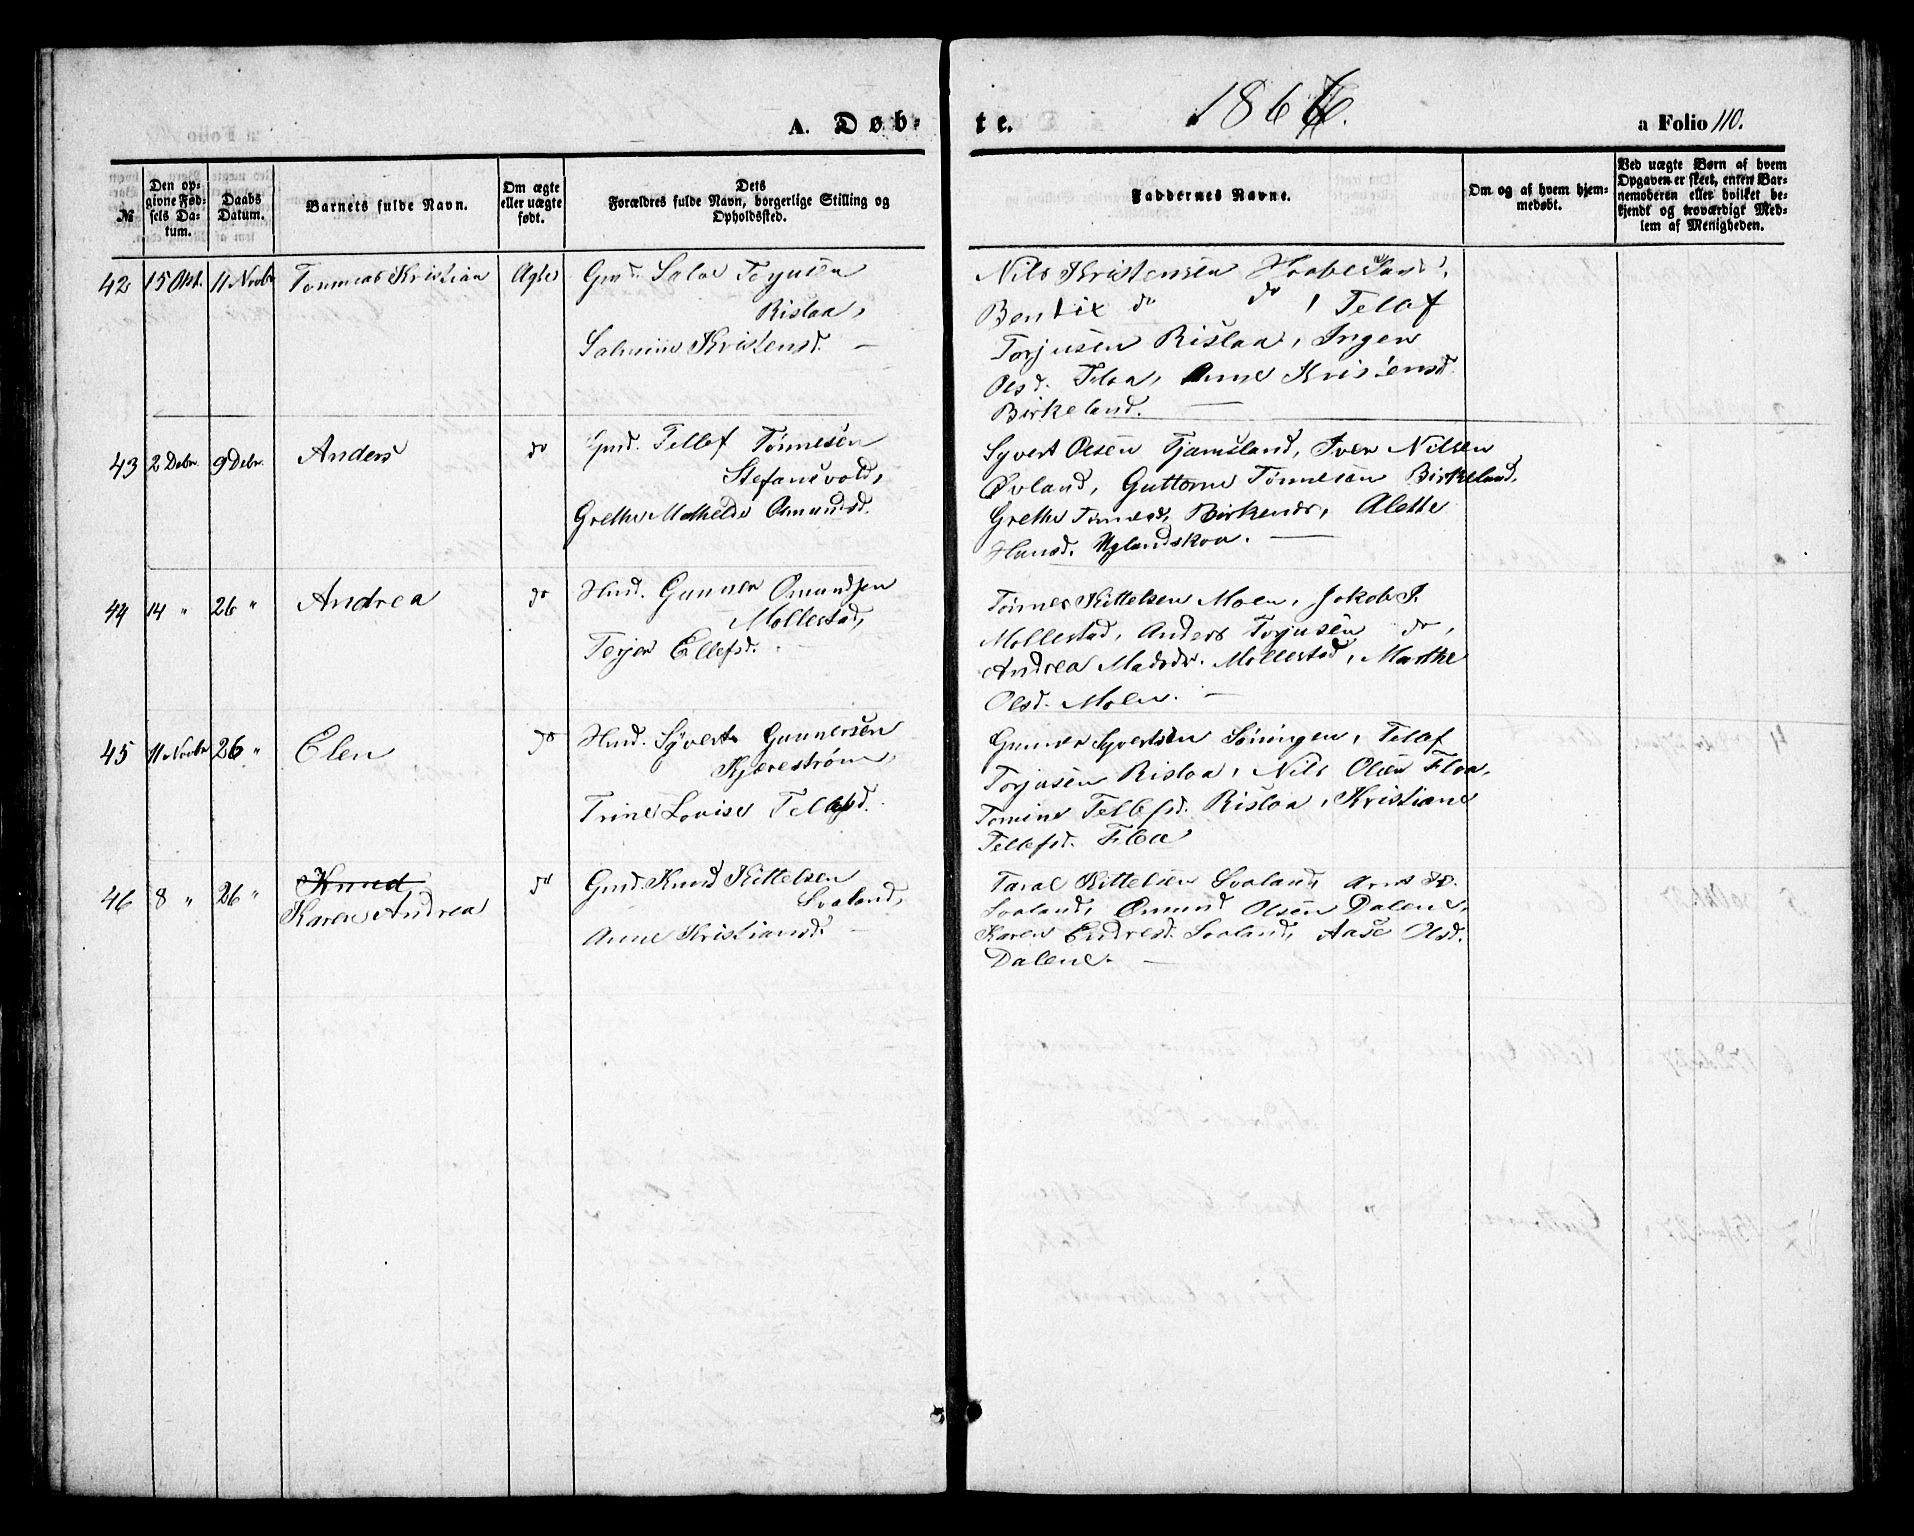 A. Døb-
te.
1866.
a Folio 110.
№
Den op-
givne Fød-
sels Da-
tum.
Daabs
Datum.
Barnets fulde Navn.
Om ægte
eller uægte
født.
Dets
Forældres fulde Navn, borgerlige Stilling og
Opholdssted.
Faddernes Navne.
Om og af hvem hjem-
medøbt.
Ved uægte Børn af hvem
Opgaven er skeet, enten Bar-
nemoderen eller hvilket be-
kjendt og troværdigt Med-
lem af Menigheden.
42 15 Okt. 11 Novbr Tommas Kristian Ægte
Gmd. Salve Torjusen
Rislaa,
Salmine Kristensd. —
Nils Kristensen Haabesland,
Bentix do do, Tellef
Torjusen Rislaa, Ingen
Olsd. Floa, Anne Kristensd.
Birkeland. —
43 2 Debr. 9 Debr. Anders do
Gmd. Tellef Tønnesen
Stefansvold,
Grethe Mathilde Omundsd.
Syvert Olsen Tjamsland, Iver Nilsen
Øvland, Guttorm Tønnesen Birkeland,
Grethe Tønnesd. Birkenes, Alethe
Hansd. Uglandskoa. —
44 14 " 26 " Andrea do
Hmd. Gunner Omundsen
Mollestad,
Terjer Ellefsd. —
Tønnes Kittelsen Moen, Jakob J.
Mollestad, Anders Torjusen do,
Andrea Madsdr. Mollestad, Marthe
Olsd. Moen. —
45 11 Novbr 26 " Elen do
Hmd. Syvert Gunnersen
Kjerestrøm,
Trine Lovise Tellefsd.
Gunner Syvertsen Søningen, Tellef
Torjusen Rislaa, Nils Olsen Floa,
Tomine Tellefsd. Rislaa, Kristiane
Tellefsd. Floa
46 8 " 26 " Knud
Karen Andrea do
Gmd. Knud Kittelsen
Svaland,
Anne Kristiansd. —
Taral Kittelsen Svaland, Arne
Svaland, Omund Olsen Dalene,
Karen Endresd. Svaland, Aase Olsd.
Dalene. —